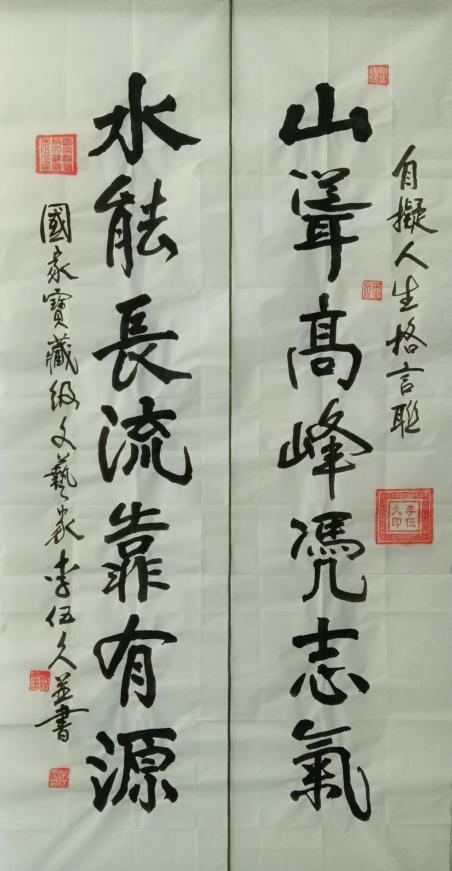 自擬人生格言聯
山聳高峰凴志氣
水能長流靠有源
國家寶藏級文藝家李伍久並書
李伍久印